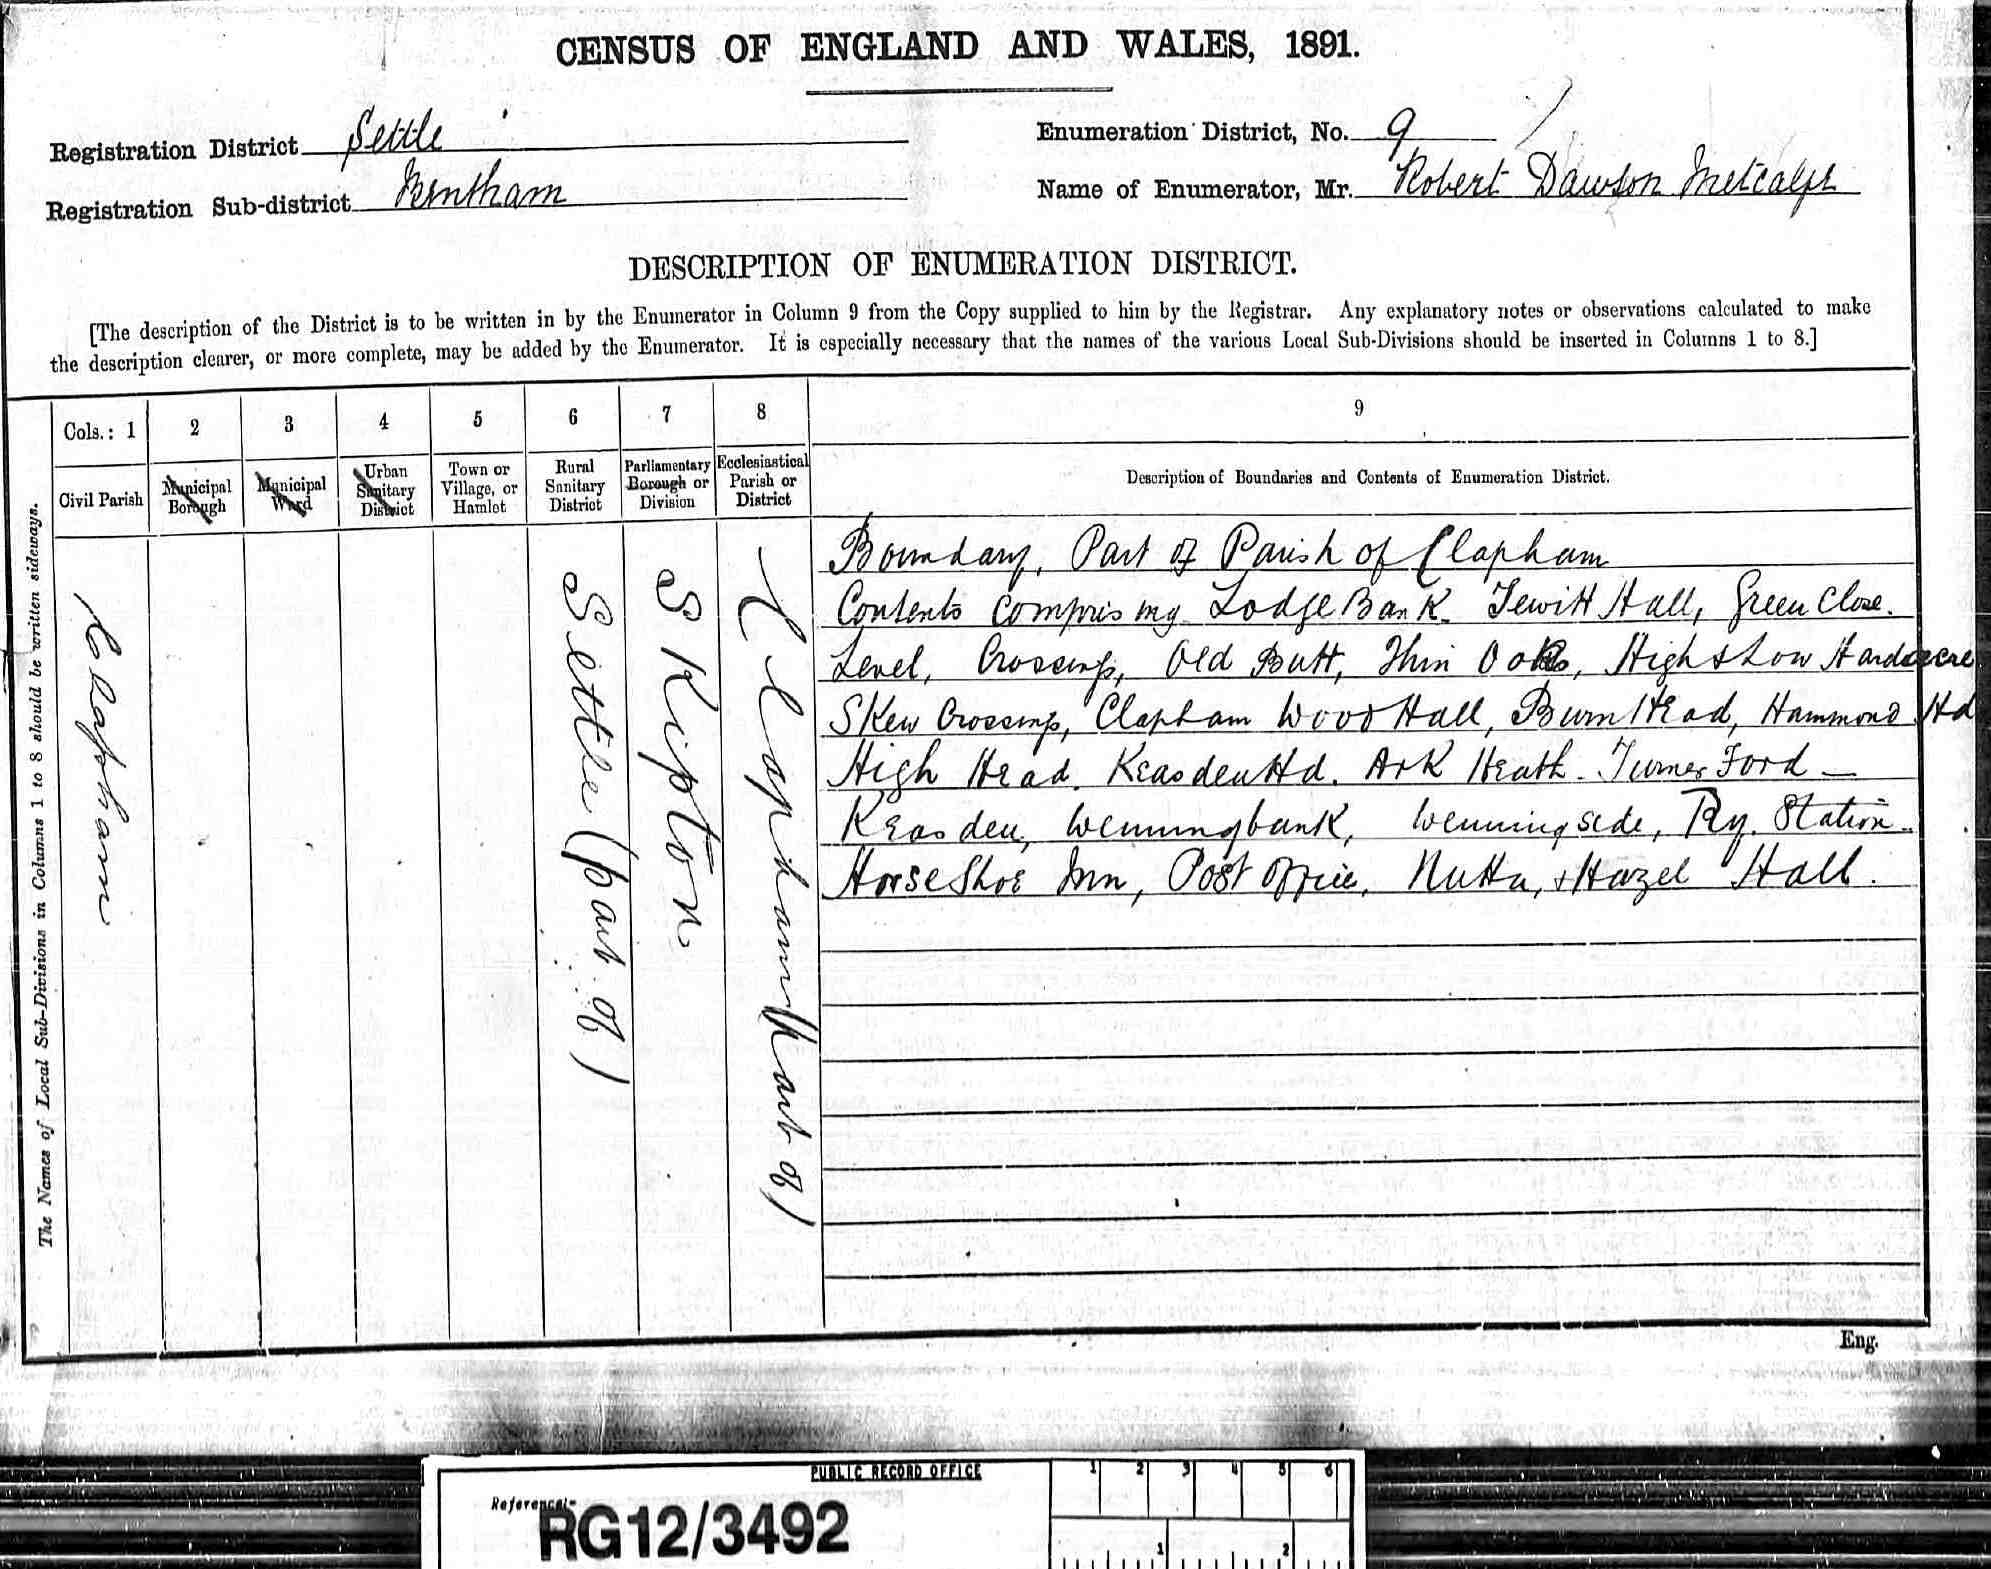 CENSUS OF ENGLAND AND WALES, 1891.
Registration District Settle
Enumeration District, No. 9
Registration Sub-district Bentham
Name of Enumerator, Mr. Robert Dawson Metcalfe
DESCRIPTION OF ENUMERATION DISTRICT.
[The description of the District is to be written in by the Enumerator in Column 9 from the Copy supplied to him by the Registrar. Any explanatory notes or observations calculated to make
the description clearer, or more complete, may be added by the Enumerator. It is especially necessary that the names of the various Local Sub-Divisions should be inserted in Columns 1 to 8.]
The Names of Local Sub-Divisions in Columns 1 to 8 should be written sideways.
Cols.: 1 2 3 4 5 6 7 8 9
Civil Parish
Municipal Borough
Municipal Ward
Urban Sanitary District
Town or Village, or Hamlet
Rural Sanitary District
Parliamentary Borough or Division
Ecclesiastical Parish or District
Description of Boundaries and Contents of Enumeration District.
Clapham
Settle (part of)
Skipton
Clapham (part of)
Boundary, Part of Parish of Clapham
Contents comprising Lodge Bank. Tewitt Hall, Green Close.
Level, Crossing, Old Butt, Thin Oaks, High & Low Hardacre
Skew Crossing, Clapham Wood Hall, Burn Head, Hammond Hd
High Head. Keasden Hd. Ark Heath - Turner Ford -
Keasden, Wenningbank, Wenningside, Ry. Station.
Horse Shoe Inn, Post Office, Nutta, & Hazel Hall.
Eng.
PUBLIC RECORD OFFICE
Reference:-
RG12/3492
1 2 3 4 5 6
1 2